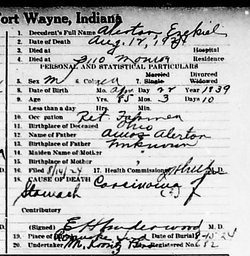 ort Wayne, Indiana
1. Decedent's Full Name Alerton, Ezekiel
2. Date of Death Aug. 17, 1924
3. Died at Hospital
4. Died at 2110 Monroe Residence
PERSONAL AND STATISTICAL PARTICULARS
5. Sex M Color Married Single Widowed Divorced
8. Date of Birth Mo. Apr Day 22 Year 1839
9. Age Yrs. 85 Mos. 3 Days 10
Less than a day Hrs. Min.
10. Occupation Ret. Farmer
11. Birthplace of Deceased Ohio
12. Name of Father Amos Alerton
13. Birthplace of Father Unknown
14. Maiden Name of Mother
15. Birthplace of Mother
16. Filed 8/14/24 17. Health Commissioner M. D.
18. CAUSE OF DEATH Carcinoma of
Stomach
Contributory
(Signed) E H Underwood M. D.
19. Place of Date of Burial 8-15-24
20. Undertaker Registered No. 82